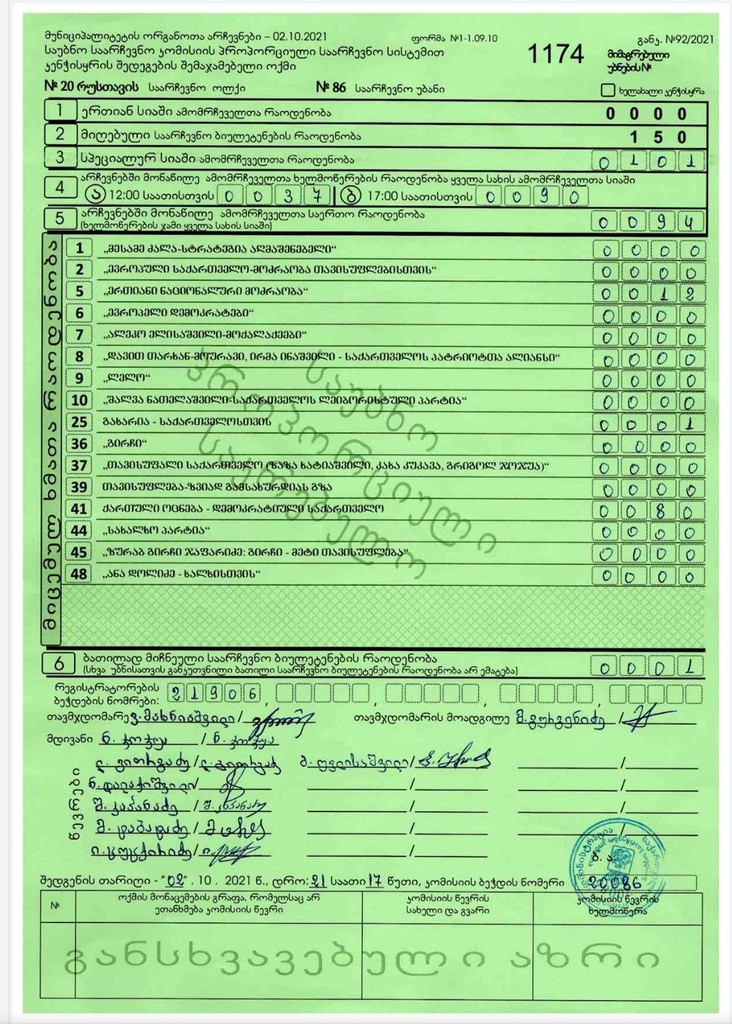 მუნიციპალიტეტის ორგანოთა არჩევნები – 02.10.2021 ფორმა №1-1.09.10 განკ. №92/2021
საუბნო საარჩევნო კომისიის პროპორციული საარჩევნო სისტემით 1174 მიმაგრებული
კენჭისყრის შედეგების შემაჯამებელი ოქმი უბნების№
№ 20 რუსთავის საარჩევნო ოლქი № 86 საარჩევნო უბანი ხელახალი კენჭისყრა
1 ერთიან სიაში ამომრჩეველთა რაოდენობა 0 0 0 0
2 მიღებული საარჩევნო ბიულეტენების რაოდენობა 1 5 0
3 სპეციალურ სიაში ამომრჩეველთა რაოდენობა 0 1 0 1
4 არჩევნებში მონაწილე ამომრჩეველთა ხელმოწერების რაოდენობა ყველა სახის ამომრჩეველთა სიაში
ა 12:00 საათისთვის 0 0 3 7 ბ 17:00 საათისთვის 0 0 9 0
5 არჩევნებში მონაწილე ამომრჩეველთა საერთო რაოდენობა 0 0 9 4
(ხელმოწერების ჯამი ყველა სახის სიაში)
მიცემულ ხმათა რაოდენობა
1 „მესამე ძალა-სტრატეგია აღმაშენებელი“ 0 0 0 0
2 „ევროპული საქართველო-მოძრაობა თავისუფლებისთვის“ 0 0 0 0
5 „ერთიანი ნაციონალური მოძრაობა“ 0 0 1 2
6 „ევროპელი დემოკრატები“ 0 0 0 0
7 „ალეკო ელისაშვილი-მოქალაქეები“ 0 0 0 0
8 „დავით თარხან-მოურავი, ირმა ინაშვილი - საქართველოს პატრიოტთა ალიანსი“ 0 0 0 0
9 „ლელო“ 0 0 0 0
10 „შალვა ნათელაშვილი-საქართველოს ლეიბორისტული პარტია“ 0 0 0 0
25 გახარია - საქართველოსთვის 0 0 0 1
36 „გირჩი“ 0 0 0 0
37 „თავისუფალი საქართველო (ზაზა ხატიაშვილი, კახა კუკავა, გრიგოლ ჯოჯუა)“ 0 0 0 0
39 თავისუფლება-ზვიად გამსახურდიას გზა 0 0 0 0
41 ქართული ოცნება - დემოკრატიული საქართველო 0 0 8 0
44 „სახალხო პარტია“ 0 0 0 0
45 „ზურაბ გირჩი ჯაფარიძე: გირჩი - მეტი თავისუფლება“ 0 0 0 0
48 „ანა დოლიძე - ხალხისთვის“ 0 0 0 0
საუბნო
პროპორციული
საკრებულო
6 ბათილად მიჩნეული საარჩევნო ბიულეტენების რაოდენობა 0 0 0 1
(სხვა უბნისათვის განკუთვნილი ბათილი საარჩევნო ბიულეტენების რაოდენობა არ ემატება)
რეგისტრატორების
ბეჭდების ნომრები: 2 1 9 0 6
თავმჯდომარე ვ. მახნიაშვილი / თავმჯდომარის მოადგილე მ. გურგენიძე /
მდივანი ნ. ჯოჯუა / ნ. ჯოჯუა
წევრები
/ /
/
/
/
/
შედგენის თარიღი - "02". 10 . 2021 წ., დრო: 21 საათი 17 წუთი, კომისიის ბეჭდის ნომერი 20086
ბ. ა.
№ ოქმის მონაცემების გრაფა, რომელსაც არ ეთანხმება კომისიის წევრი კომისიის წევრის სახელი და გვარი კომისიის წევრის ხელმოწერა
განსხვავებული აზრი